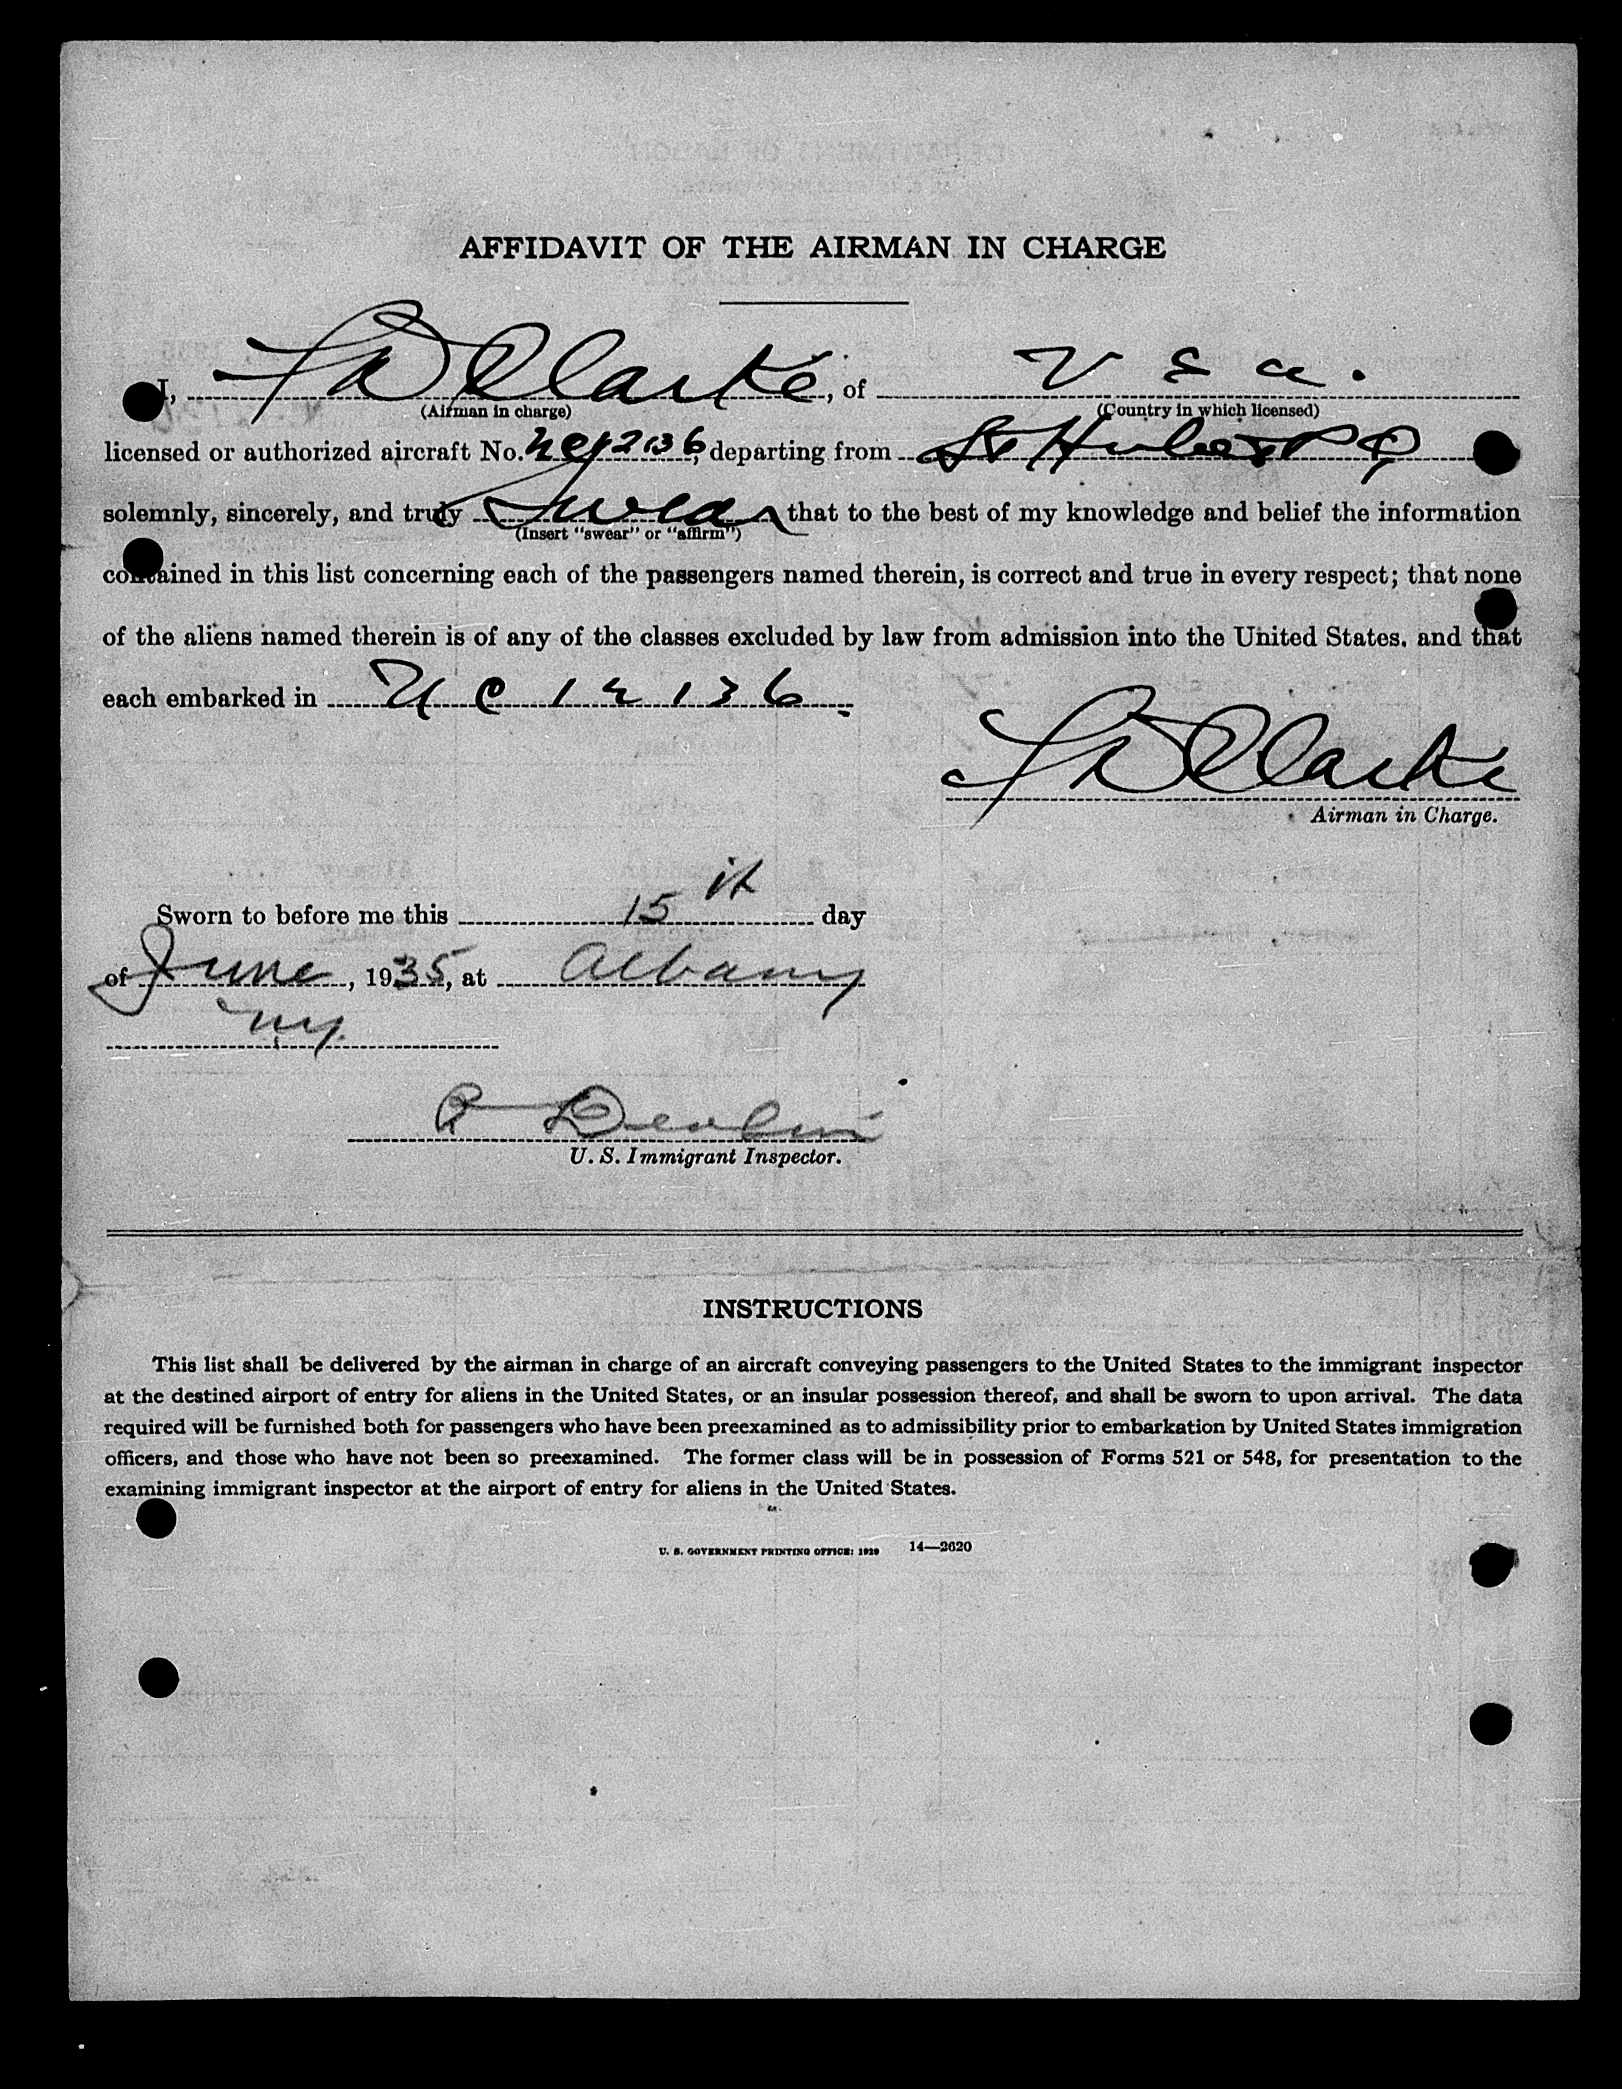 AFFIDAVIT OF THE AIRMAN IN CHARGE
I, F W Clarke, of U S A.
(Airman in charge) (Country in which licensed)
licensed or authorized aircraft No. NC12136, departing from St Hubert P Q
solemnly, sincerely, and truly Swear that to the best of my knowledge and belief the information
(Insert "swear" or "affirm")
contained in this list concerning each of the passengers named therein, is correct and true in every respect; that none
of the aliens named therein is of any of the classes excluded by law from admission into the United States, and that
each embarked in N C 1 2 1 3 6.
F W Clarke
Airman in Charge.
Sworn to before me this 15th day
of June, 1935, at Albany
N.Y.
R Devlin
U. S. Immigrant Inspector.
INSTRUCTIONS
This list shall be delivered by the airman in charge of an aircraft conveying passengers to the United States to the immigrant inspector
at the destined airport of entry for aliens in the United States, or an insular possession thereof, and shall be sworn to upon arrival. The data
required will be furnished both for passengers who have been preexamined as to admissibility prior to embarkation by United States immigration
officers, and those who have not been so preexamined. The former class will be in possession of Forms 521 or 548, for presentation to the
examining immigrant inspector at the airport of entry for aliens in the United States.
U. S. GOVERNMENT PRINTING OFFICE: 1929 14—2620